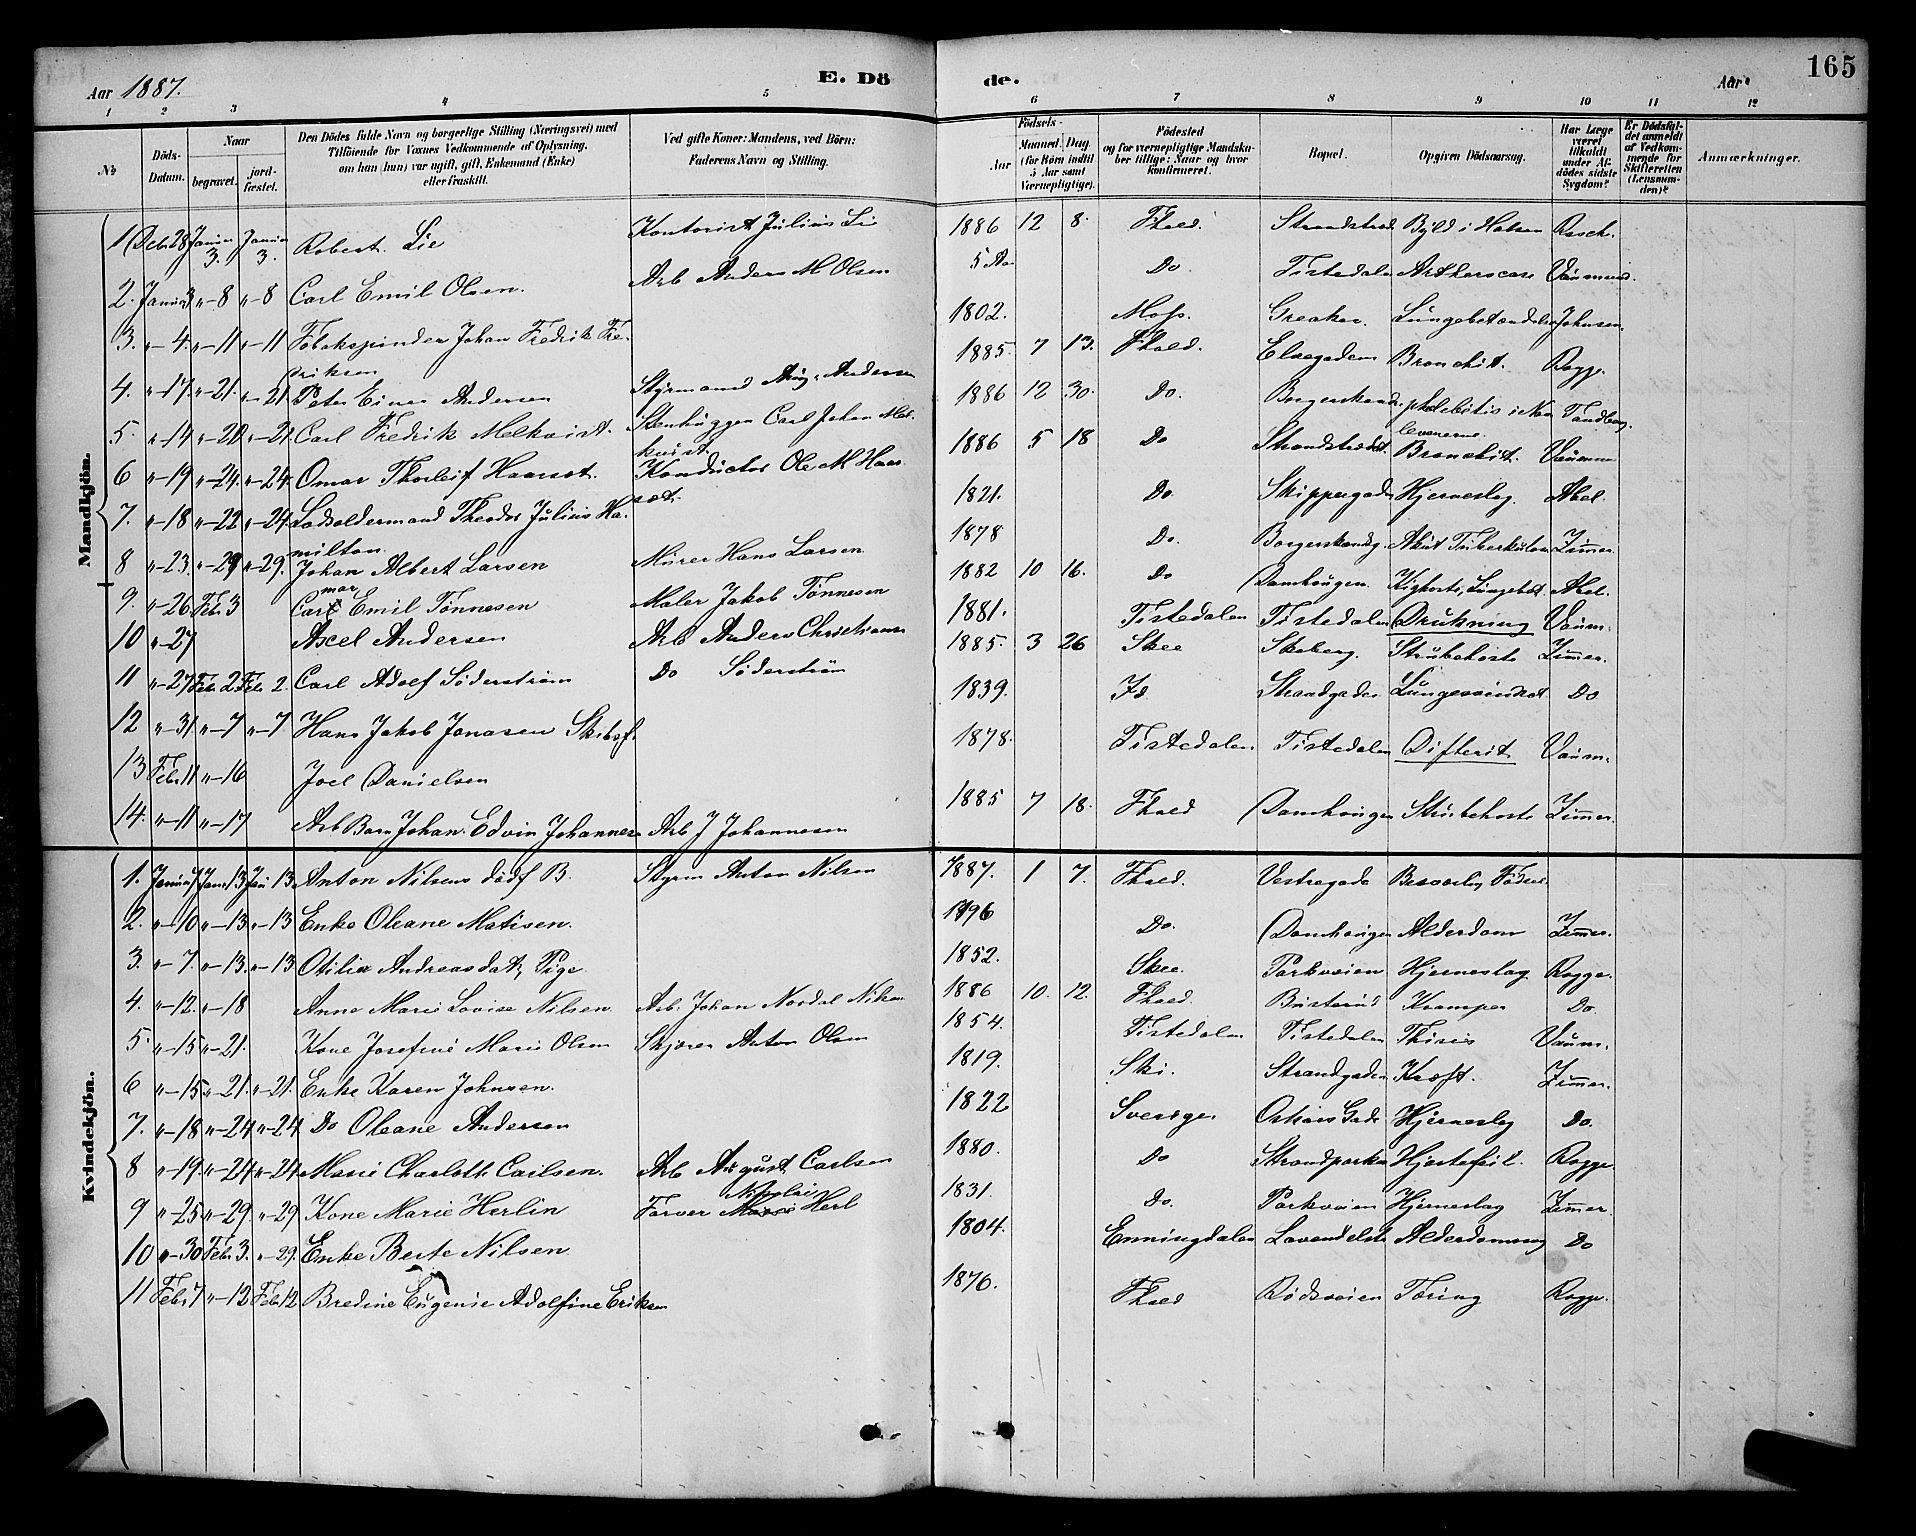 Aar 1887.
E. Dö
de.
Aar
165
1 2 3 4 5 6 7 8 9 10 11 12
№
Döds-Datum.
Naar
begravet.
jordfæstet.
Den Dödes fulde Navn og borgerlige Stilling (Næringsvei) med
Tilföiende for Voxnes Vedkommende af Oplysning,
om han (hun) var ugift, gift, Enkemand (Enke)
eller fraskilt.
Ved gifte Koner: Mandens, ved Börn:
Faderens Navn og Stilling.
Födsels-
Aar
Maaned. Dag
(for Börn indtil
5 Aar samt
Værnepligtige).
Födested
og for værnepligtige Mandskaber tillige: Naar og hvor
konfirmeret.
Bopæl.
Opgiven Dödsaarsag.
Har Læge været tilkaldt under Afdödes sidste Sygdom?
Er Dödsfaldet anmeldt af Vedkommende for Skifteretten (Lensmanden)?
Anmærkninger.
Mandkjön.
1 Decbr 28 Januar 3. Januar 3. Robert Lie Kontorist Julius Lie 1886 12 8. Fhald. Strandstræd Byld i Halsen Rasch.
2. Januar 3 "-8 "-8 Carl Emil Olsen. Arb Anders M Olsen 5 Aar Do. Tistedalen
3. "-4. "-11 "-11 Johan Fredrik Fredriksen 1802. Moss. Greaker. Lungebetændelse Johnsen.
4. "-17. "-21. "-21. Peter Einar Andersen Styrmand Aug. Andersen 1885. 7 13. Fhald. Elvegaden Bronchit. Rogge.
5. "-14 "-20 "-21. Carl Fredrik Melkvist. Stenhugger Carl Johan Melkvist. 1886 12 30. Do. phlebitis i Navlevenerne. Tandberg.
6 "-19 "-24. "-24. Omar Thorleif Haarset. Konductør Ole M Haarset. 1886 5 18 Do Strandstrædet Bronchit. Vaumm
7. "-18 "-22 "-24. Lodsoldermand Theodor Julius Hamilton 1821. Do. Skippergaden Hjerneslag. Abel.
8 "-23. "-29 "-29. Johan Albert Larsen Murer Hans Larsen 1878 Do. Borgerskandsg. Akut Tuberkulose Zimmer.
9. "-26 Febr. 3 Carlmar Emil Tønnesen Maler Jakob Tønnesen 1882 10 16. Do Damhaugen. Kighoste, Lungebet. Abel.
10 "-27 Axel Andersen Arb Anders Christiansen 1881. Tistedalen Tistedalen Drukning Vaum.
11 "-27 Febr 2 Febr 2. Carl Adolf Söderström Do Söderström 1885. 3 26 Skee Skoberg. Strubehoste Zimmer.
12 "-31 "-7 "-7 Hans Jakob Jonasen Skibsf. 1839. Id Strandgaden Lungesvindsot Do
13 Febr 11 "-16 Joel Danielsen 1878. Tistedalen Tistedalen Difterit Vaum.
14. "-11 "-17 Arb Barn Johan Edvin Johannesen Arb J Johannesen 1885 7 18. Fhald Damhaugen Strubehoste Zimmer.
Kvindekjön.
1. Januar 7 Janr 13 Jan 13 Anton Nilsens dödf B. Styrm Anton Nilsen 1887. 1 7. Fhald. Vestregade Besværlig Födsel
2. "-10 "-13 "-13 Enke Oleane Matisen. 1796 Do. Damhaugen Alderdom Zimmer.
3. "-7. "-13. "-13 Otilia Andreasdatr, Pige. 1852. Skee. Parkveien Hjerneslag Rogge.
4. "-12. "-18 Anne Marie Lovise Nilsen Arb. Johan Nordal Nilsen 1886 10. 12. Fhald. Busterud Kramper Do.
5. "-15 "-21. Kone Josefine Marie Olsen Skjærer Anton Olsen 1854. Tistedalen Tistedalen Thisis Vaum.
6 "-15 "-21. "-21. Enke Karen Johnsen. 1819. Ski. Strandgaden Kræft. Zimmer.
7. "-18 "-24 "-24 Do Oleane Andersen 1822 Sverige. Oskars Gade Hjerneslag Do.
8 "-19. "-24 "-24. Marie Charlotte Carlsen. Arb August Carlsen 1880. Do Strandparken Hjertefeil. Rogge.
9 "-25 "-29. "-29 Kone Marie Herlin Farver Nikolai Herl 1831. Do. Parkveien Hjerneslag Zimmer.
10 "-30 Febr 3. "-29. Enke Berte Nilsen 1804. Enningdalen Lavendelst Alderdomssvag Do
11 Febr 7 "-12 Febr 12 Bredine Eugenie Adolfine Eriksen 1876. Fhald Rödsveien Tæring Rogge.